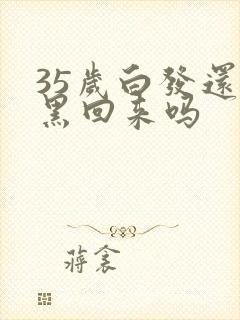 35歲白發還
黑回来吗
蔣衾